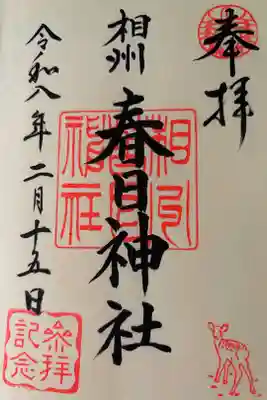 奉拝
相州
春日神社
令和八年二月十五日
参拝
記念